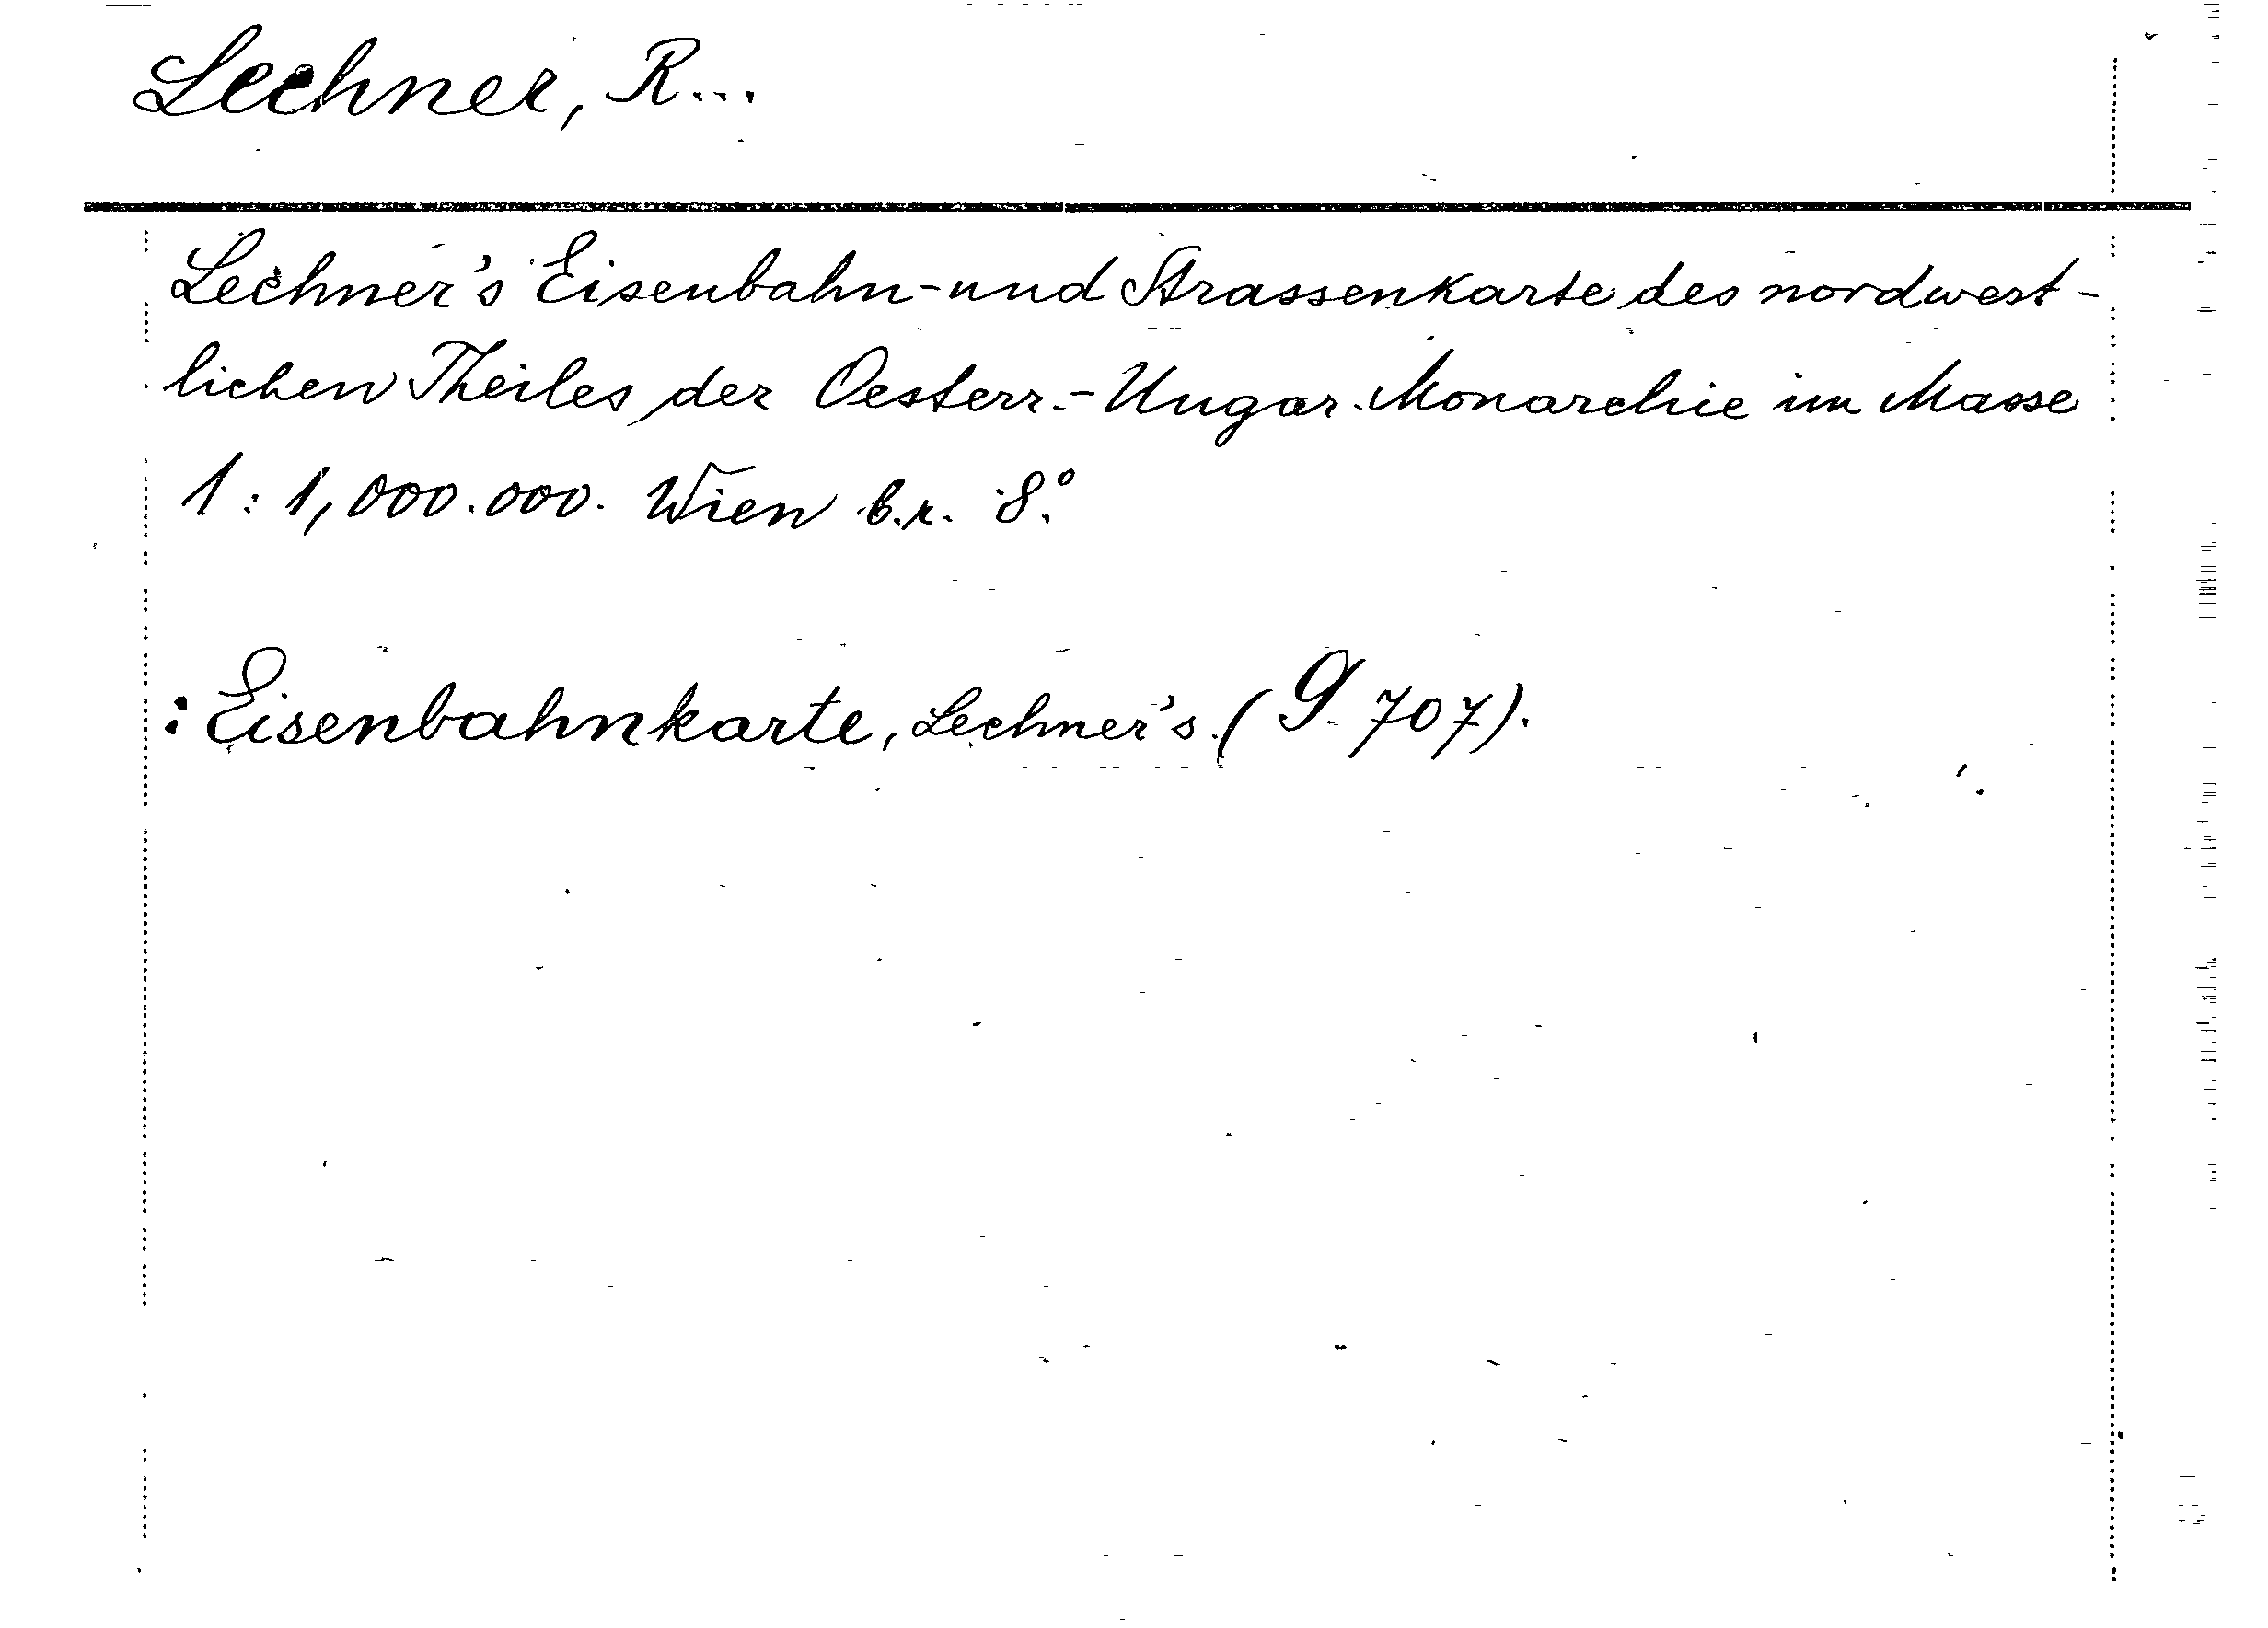 Lechner, R...
Lechner's Eisenbahn-und Strassenkarte des nordwest-
lichen Theiles der Oesterr.-Ungar. Monarchie im Masse
1:1,000.000. Wien b.r. 8°.
: Eisenbahnkarte, Lechner's. (G 707).